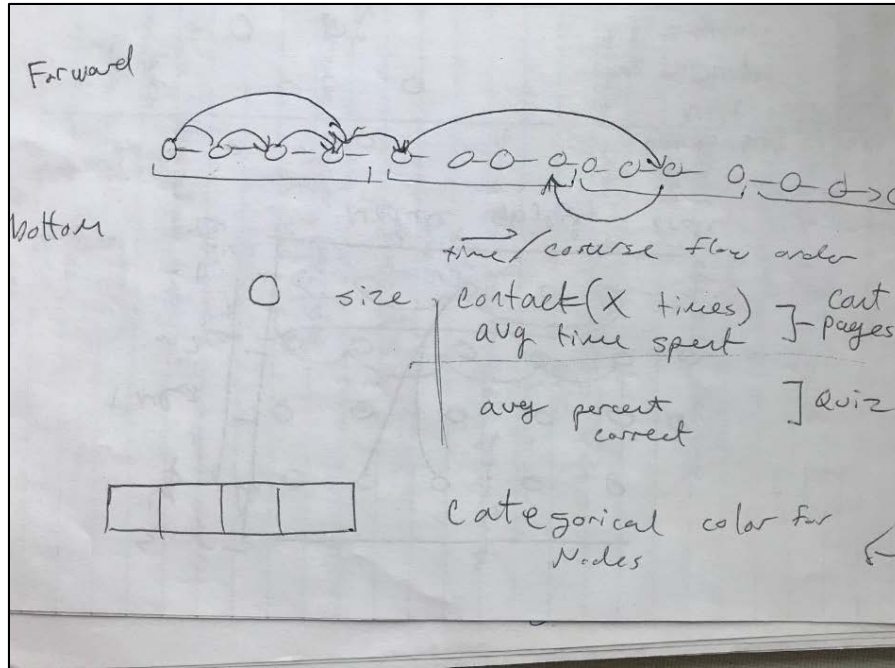 Forward
bottom
time/course flow order
size contact (X times)
avg time spent
pages
avg percent
correct
Quiz
Categorical color for
Nodes